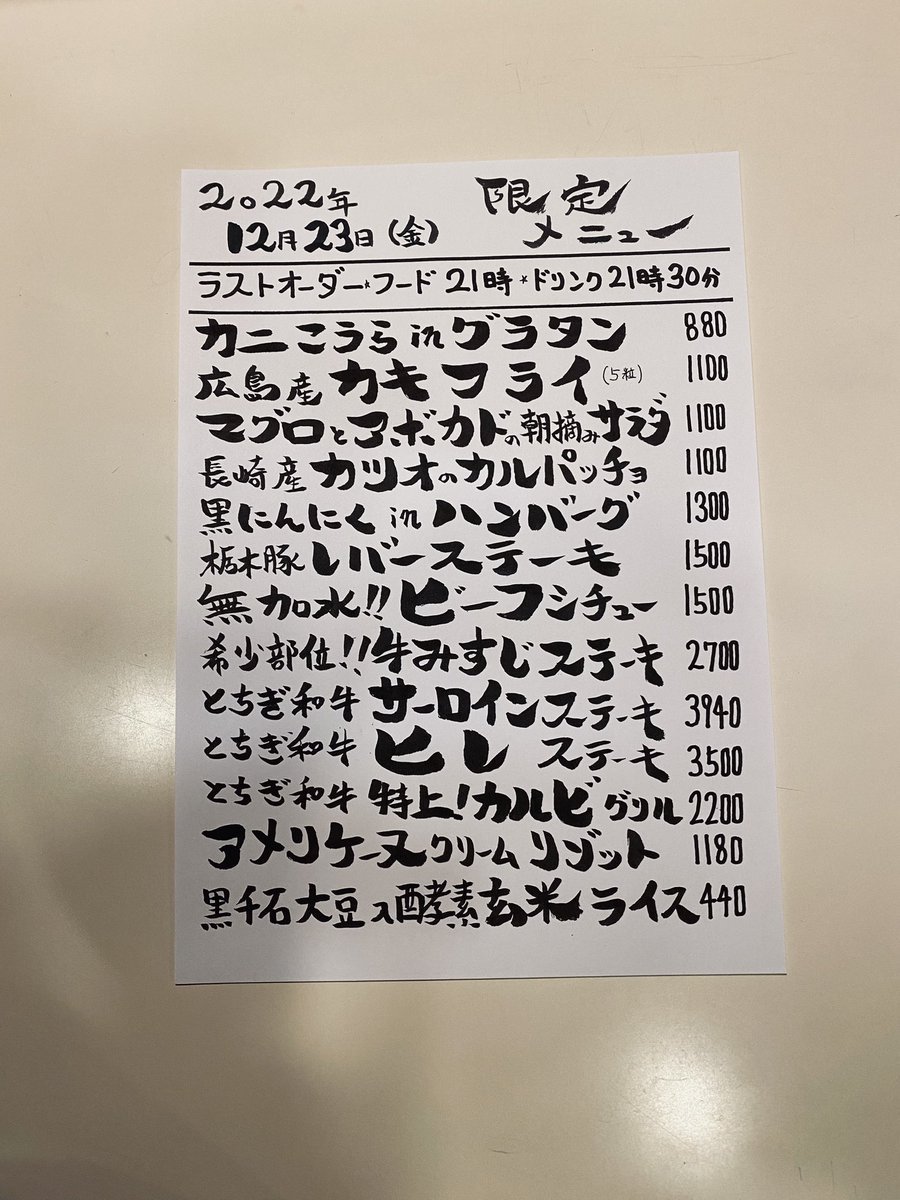 2022年
12月23日(金)
限定
メニュー
ラストオーダー*フード 21時*ドリンク21時30分
カニこうらinグラタン 880
広島産カキフライ(5粒) 1100
マグロとアボカドの朝摘みサラダ 1100
長崎産カツオのカルパッチョ 1100
黒にんにくinハンバーグ 1300
栃木豚レバーステーキ 1500
無加水!!ビーフシチュー 1500
希少部位!!牛みすじステーキ 2700
とちぎ和牛サーロインステーキ 3940
とちぎ和牛ヒレステーキ 3500
とちぎ和牛特上!カルビグリル 2200
アメリケーヌクリームリゾット 1180
黒千石大豆入酵素玄米ライス 440